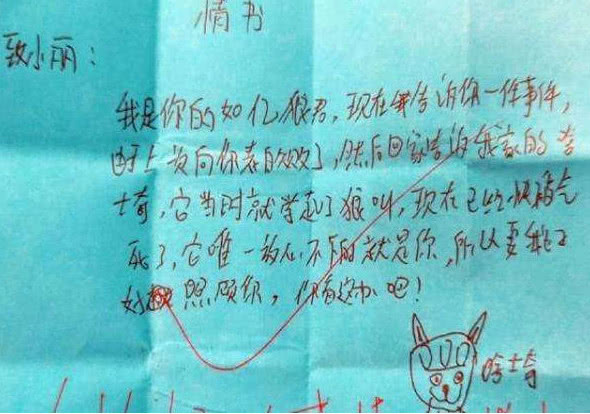 情书
致小丽：
我是你的如亿狼君，现在我告诉你一件事件，
由于上次向你表白失败了，然后回家告诉我家的哈
士奇，它当时就学起了狼叫，现在已经快气
死了，它唯一放心不下的就是你，所以要我
好照顾你，你看这办吧！
哈士奇